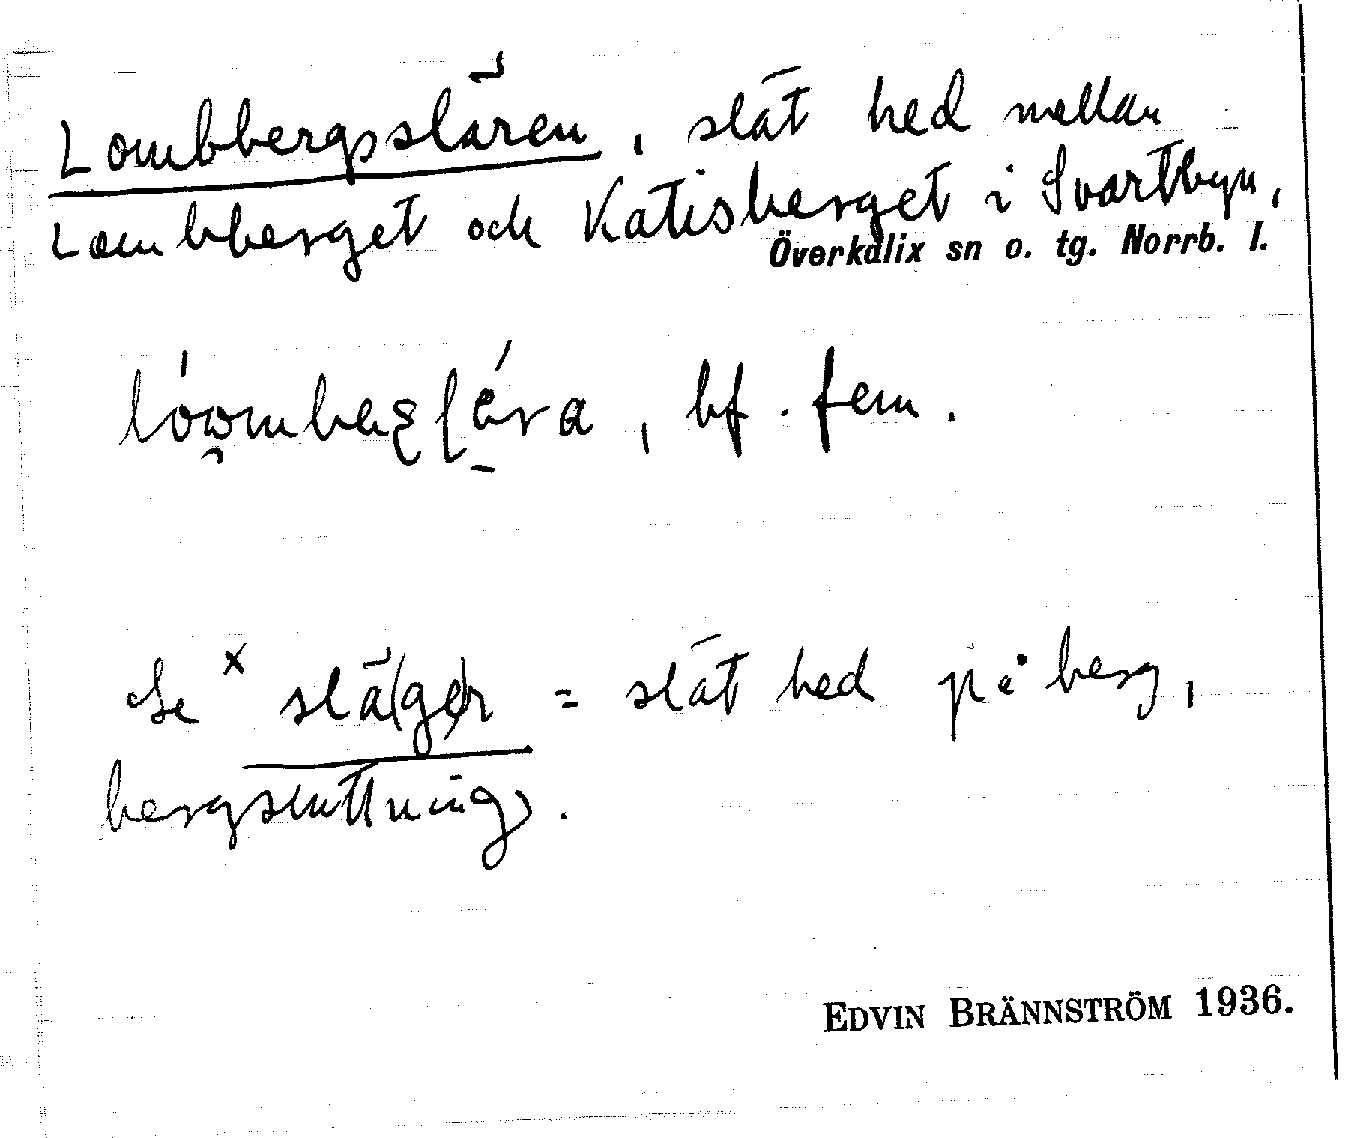 Lombbergsslären, slät hed mellan
Lombberget och Katisberget i Svartbyn,
Överkalix sn o. tg. Norrb. l.
bf. fem.
Se × slä(ge)r = slät hed på berg,
bergsluttning.
EDVIN BRÄNNSTRÖM 1936.